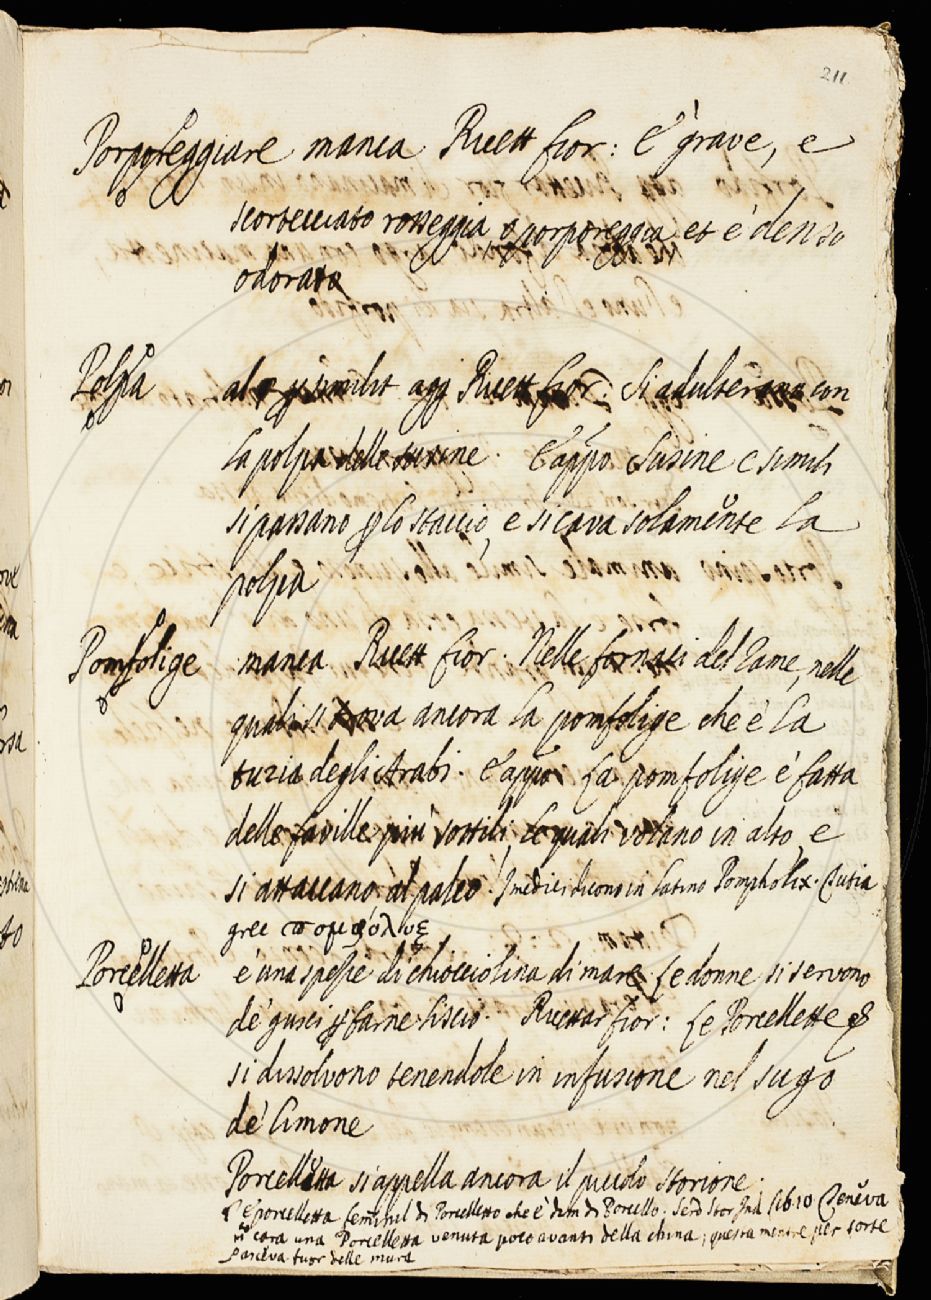 211
Porporeggiare manca Ricett fior: E' grave, e
scortecciato rosseggia o porporeggia et è denso
odorato
Polpa al § similit agg Ricett fior. Si adulterano con
la polpa delle susine. E appo Susine e simili
si passano p lo staccio, e si cava solamẽte la
polpa
Pomfolige manca Ricett fior. Nelle fornaci del rame, nelle
quali si trova ancora la pomfolige che è la
tuzia degli Arabi. E appo La pomfolige è fatta
delle faville più sottili, le quali volano in alto, e
si attaccano al palco. I medici dicono in latino Pompholix. Tutia
grec πομφόλυξ
Porcelletta è una spezie di chiocciolina di mare. Le donne si servono
de' gusci p farne liscio. Ricettar fior: Le Porcellette
si dissolvono tenendole in infusione nel sugo
de' limone
Porcelletta si appella ancora il piccolo storione.
E porcelletta feminil di Porcelletto che è dim di Porcello. Serd Stor Ind 16.10 Teneva
cara una Porcelletta venuta poco avanti della china; questa mentre per sorte
pasceva fuor delle mura